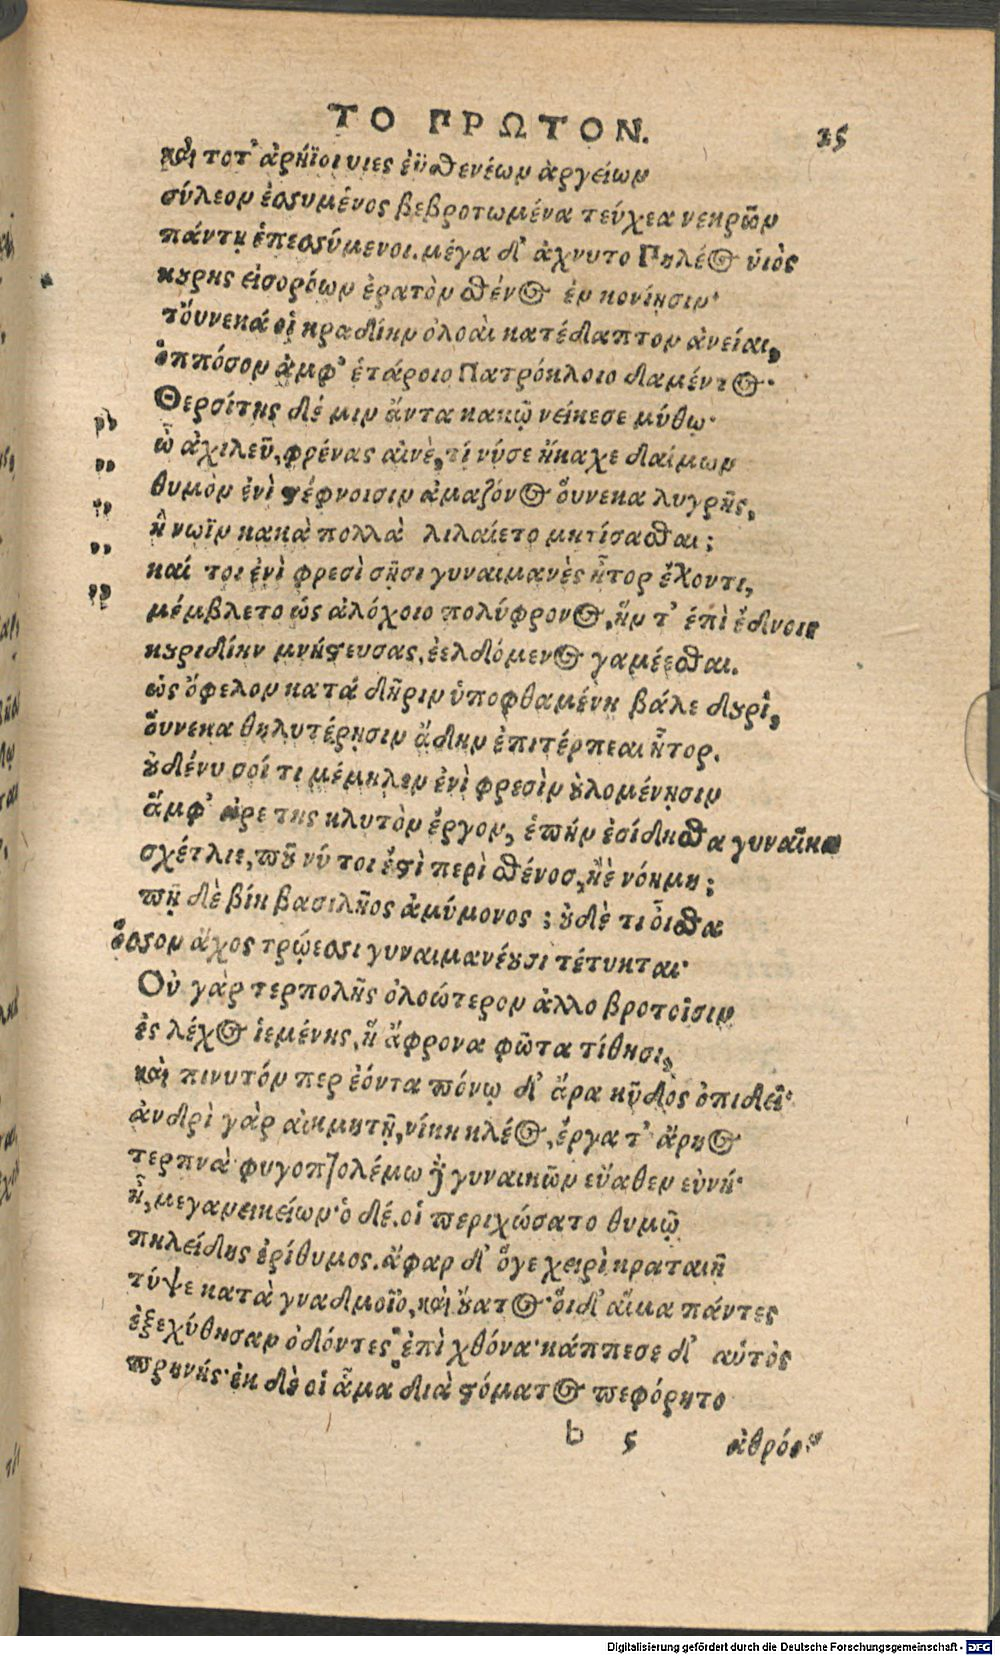 ΤΟ ΠΡΩΤΟΝ. 25
καὶ τοτ' ἀρήϊοι υιες ἐϋσθενέων ἀργείων
σύλεον ἐσσυμένος βεβροτωμένα τεύχεα νεκρῶν
πάντη ἐπεσσύμενοι. μέγα δ' ἄχνυτο Πηλέος ὑιὸς
κουρης εἰσορόων ἐρατὸν σθένος ἐν κονίησιν·
τὄυνεκά οἱ κραδίην ὀλοαὶ κατέδαπτον ἀνείαι,
ὁππόσον ἀμφ' ἑτάροιο Πατρόκλοιο δαμέντος·
Θερσίτης δέ μιν ἄντα κακῷ νείκεσε μύθῳ·
ὦ ἀχιλεῦ, φρένας αἰνὲ, τί νύ σε ἤκαχε δαίμων
θυμὸν ἐνὶ στέρνοισιν ἀμαζόνος οὕνεκα λυγρῆς,
ἣ νωῖν κακὰ πολλὰ λιλαίετο μητίσασθαι;
καί τοι ἐνὶ φρεσὶ σῇσι γυναιμανὲς ἦτορ ἔχοντι,
μέμβλετο ὡς ἀλόχοιο πολύφρονος, ἥν τ' ἐπὶ ἕδνοις
κουριδίην μνήστευσας, ἐελδόμενος γαμέεσθαι.
ὥς ὄφελον κατά δῆριν ὑποφθαμένη βάλε δουρὶ,
οὕνεκα θηλυτέρησιν ἄδην ἐπιτέρπεαι ἦτορ.
οὐδένυ σοί τι μέμηλεν ἐνὶ φρεσὶν οὐλομένησιν
ἄμφ' ἀρετης κλυτὸν ἔργον, ἐπὴν ἐσίδησθα γυναῖκα
σχέτλιε, ποῦ νύ τοι ἐστὶ περὶ σθένος, ἠὲ νόημα;
πῆ δὲ βίη βασιλῆος ἀμύμονος; οὐδὲ τι οἶσθα
ὅσσον ἄχος τρώεσσι γυναιμανέουσι τέτυκται·
Οὐ γὰρ τερπολῆς ὀλοώτερον ἀλλο βροτοῖσιν
ἐς λέχος ἱεμένης, ἥ ἄφρονα φῶτα τίθησι,
καὶ πινυτόν περ ἐόντα πόνῳ δ' ἄρα κῦδὸς ὀπιδεῖ·
ἀνδρὶ γὰρ αἰχμητῇ, νίκη κλέος, ἔργα τ' ἄρηος
τερπνὰ· φυγοπτολέμω δὲ γυναικῶν εὔαθεν εὐνή·
ἦ, μεγανεικείων· ὁ δέ. οἱ περιχώσατο θυμῷ
πηλείδης ἐρίθυμος. ἄφαρ δ' ὅγε χειρὶ κραταιῇ
τύψε κατὰ γναθμοῖο, καὶ οὔατος· ὅιδ' αἷμα πάντες
ἐξεχύθησαν ὀδόντες ἐπὶ χθόνα· κάππεσε δ' αὐτὸς
πρηνής· ἐκ δὲ οἱ ἇμα διὰ στόματος πεφόρητο
b 5 ἀθρόον